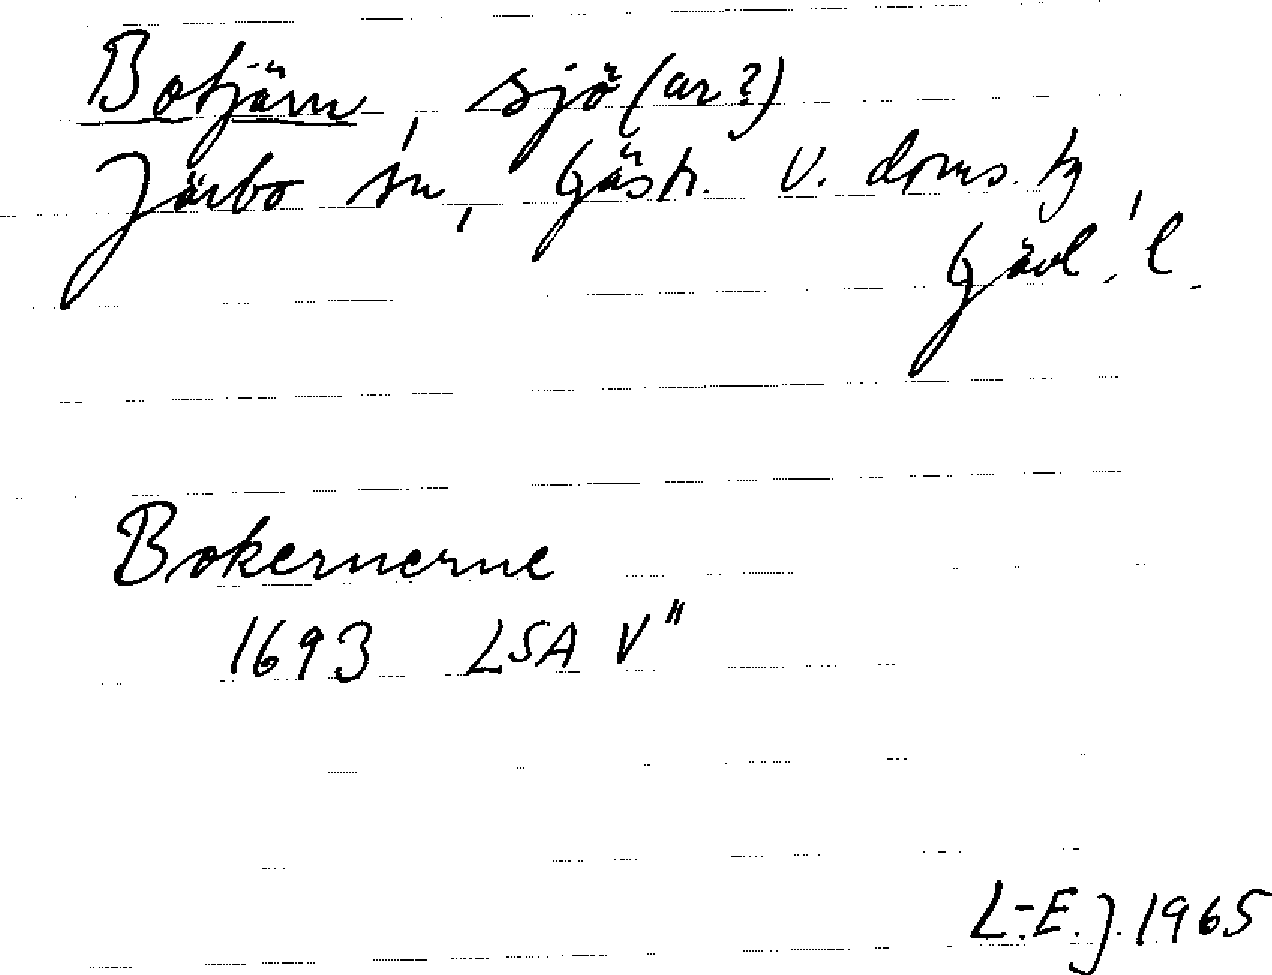 Botjärn, sjö(ar?)
Järbo sn, Gästr. V. doms. tg,
Gävl. l.
Bokernerne
1693 LSA V"
L.-E. J. 1965